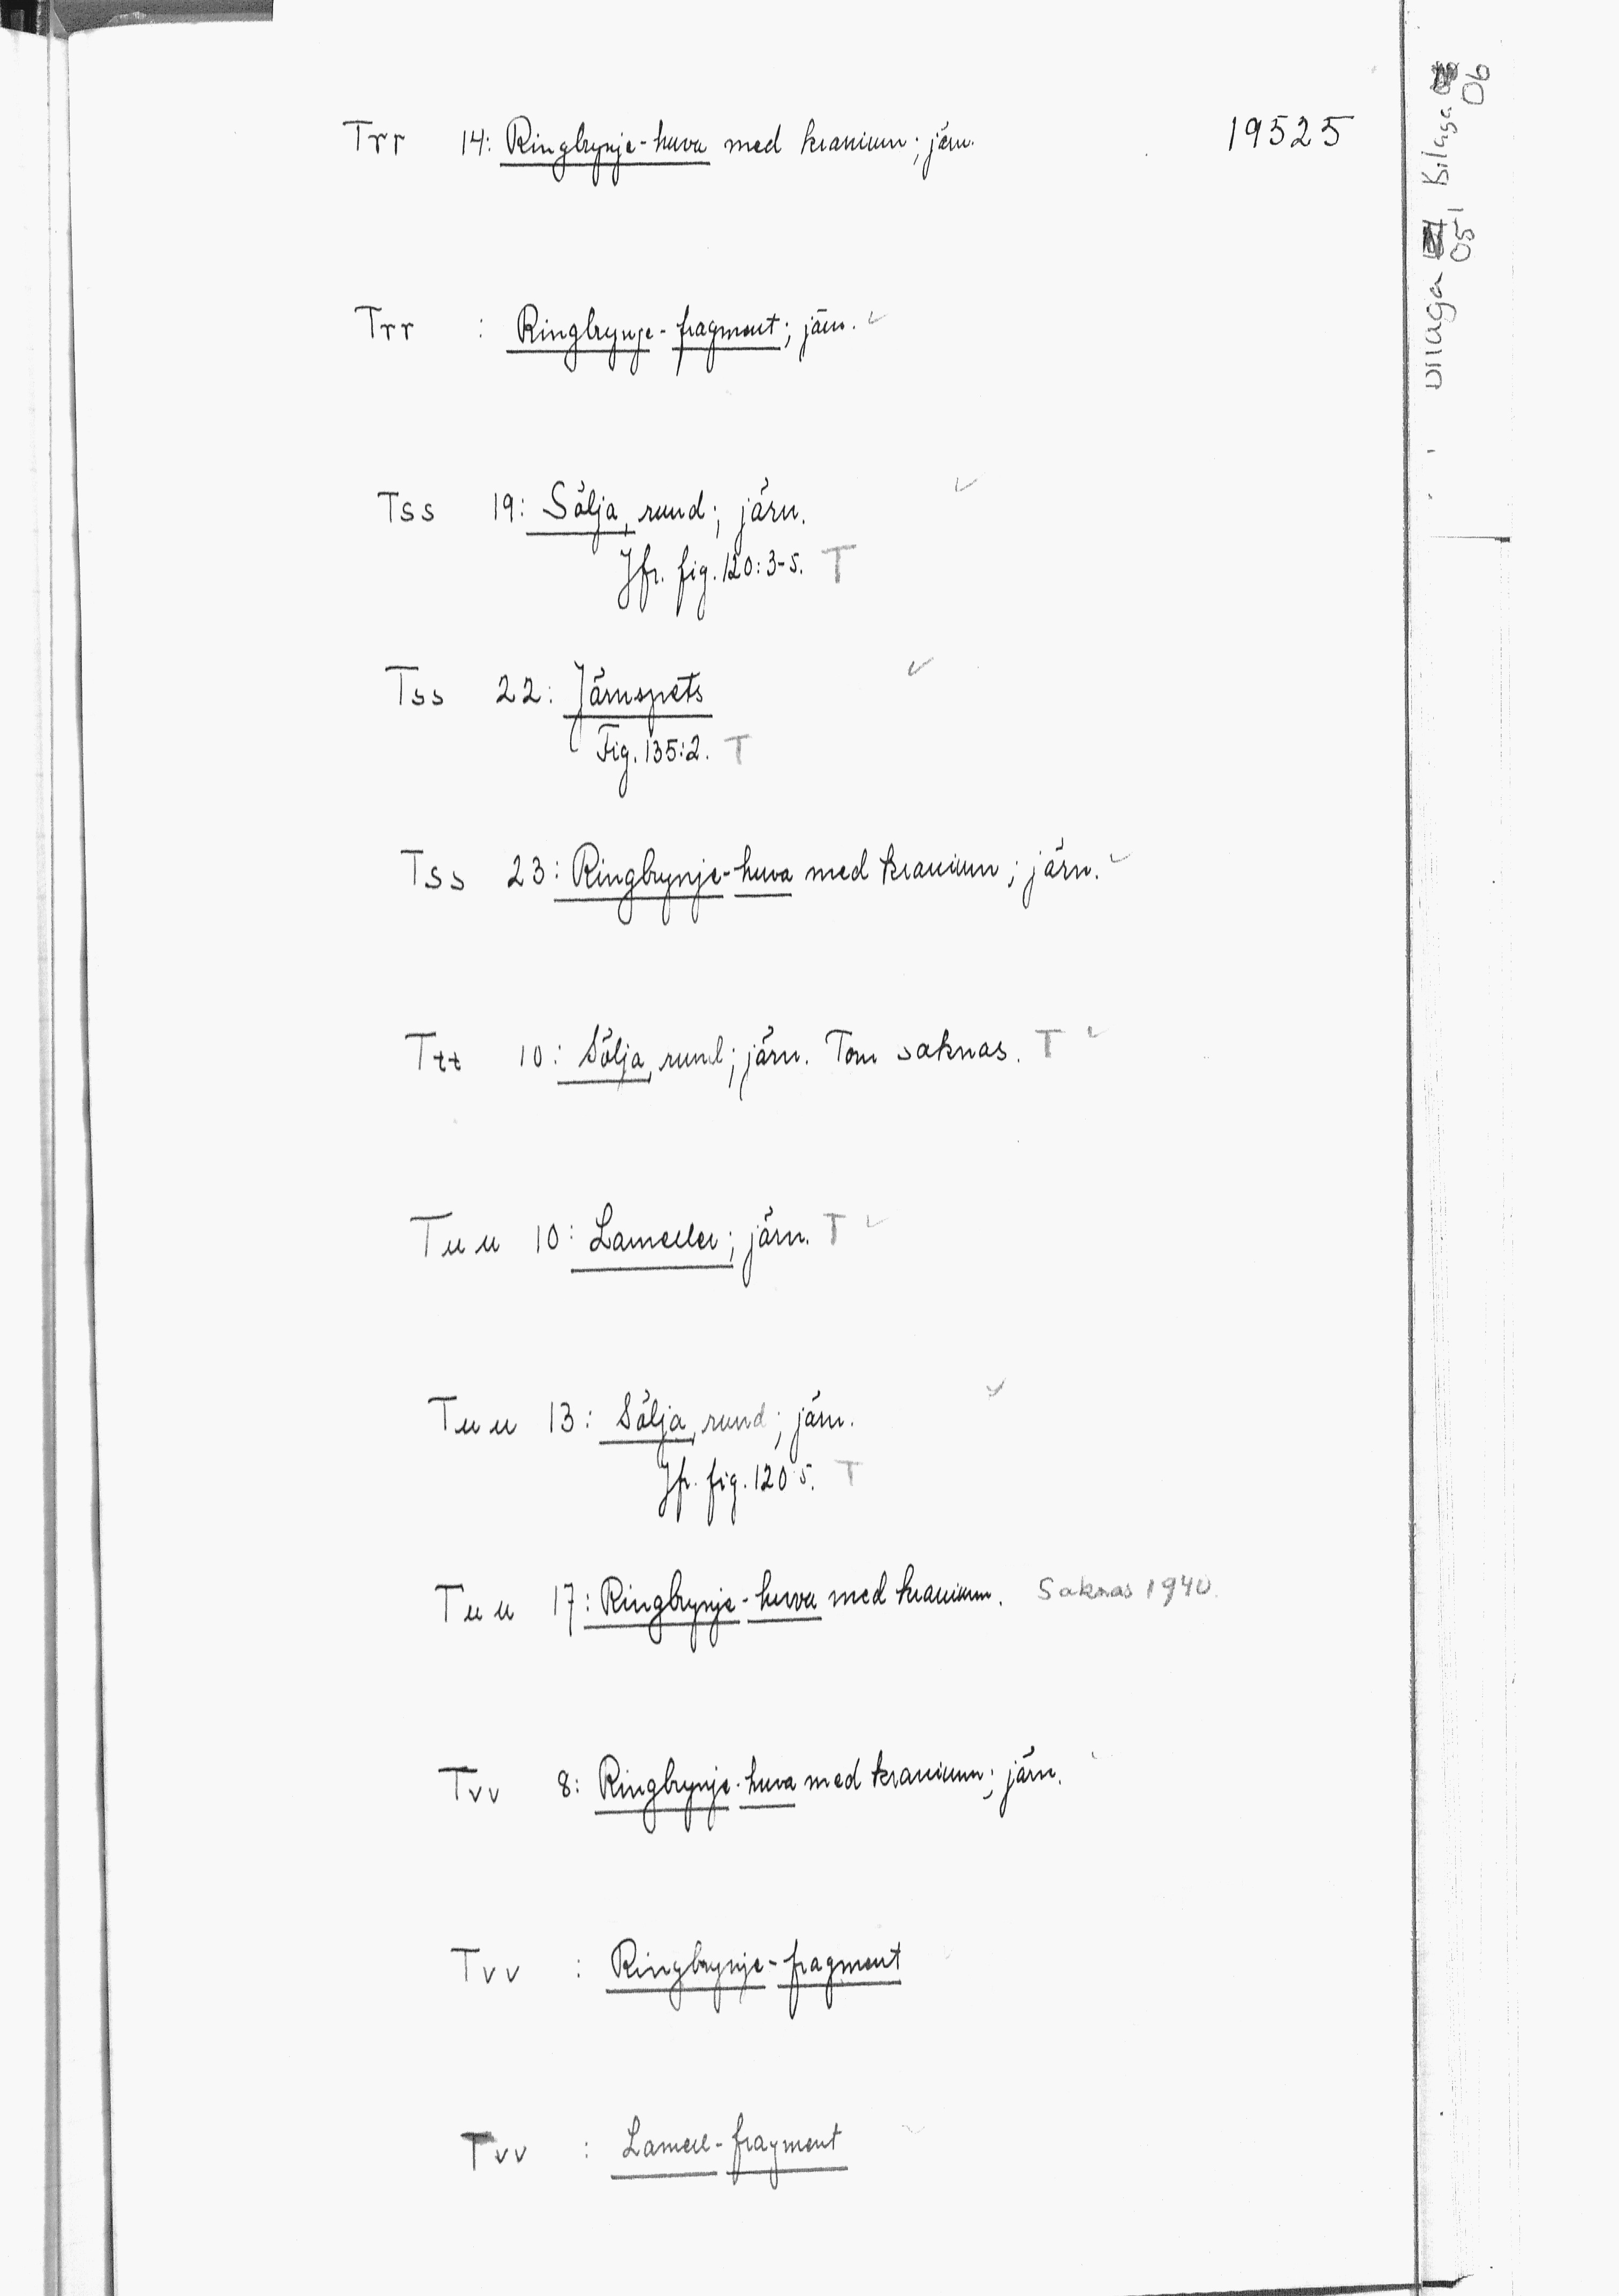 Trr 14: Ringbrynje-huva med kranium; järn. 19525
Trr : Ringbrynje-fragment; järn. ✓
Tss 19: Sölja, rund; järn. ✓
Jfr. fig. 120:3-5. T
Tss 22: Järnspets ✓
Fig. 135:2. T
Tss 23: Ringbrynje-huva med kranium; järn. ✓
Ttt 10: Sölja, rund; järn. Torn saknas. T ✓
Tuu 10: Lameller; järn. T ✓
Tuu 13: Sölja, rund; järn. ✓
Jfr. fig. 120:5. T
Tuu 17: Ringbrynje-huva med kranium. Saknas 1940.
Tvv 8: Ringbrynje-huva med kranium; järn.
Tvv : Ringbrynje-fragment
Tvv : Lamell-fragment
Bilaga 05 | Bilaga 06